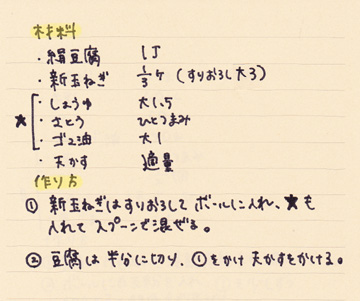 材料
・絹豆腐 1丁
・新玉ねぎ 1/3ケ (すりおろし大3)
・しょうゆ 大1.5
★・さとう ひとつまみ
・ゴマ油 大1
・天かす 適量
作り方
① 新玉ねぎはすりおろして ボールに入れ、★も
入れて スプーンで混ぜる。
② 豆腐は半分に切り、①をかけ 天かすをかける。